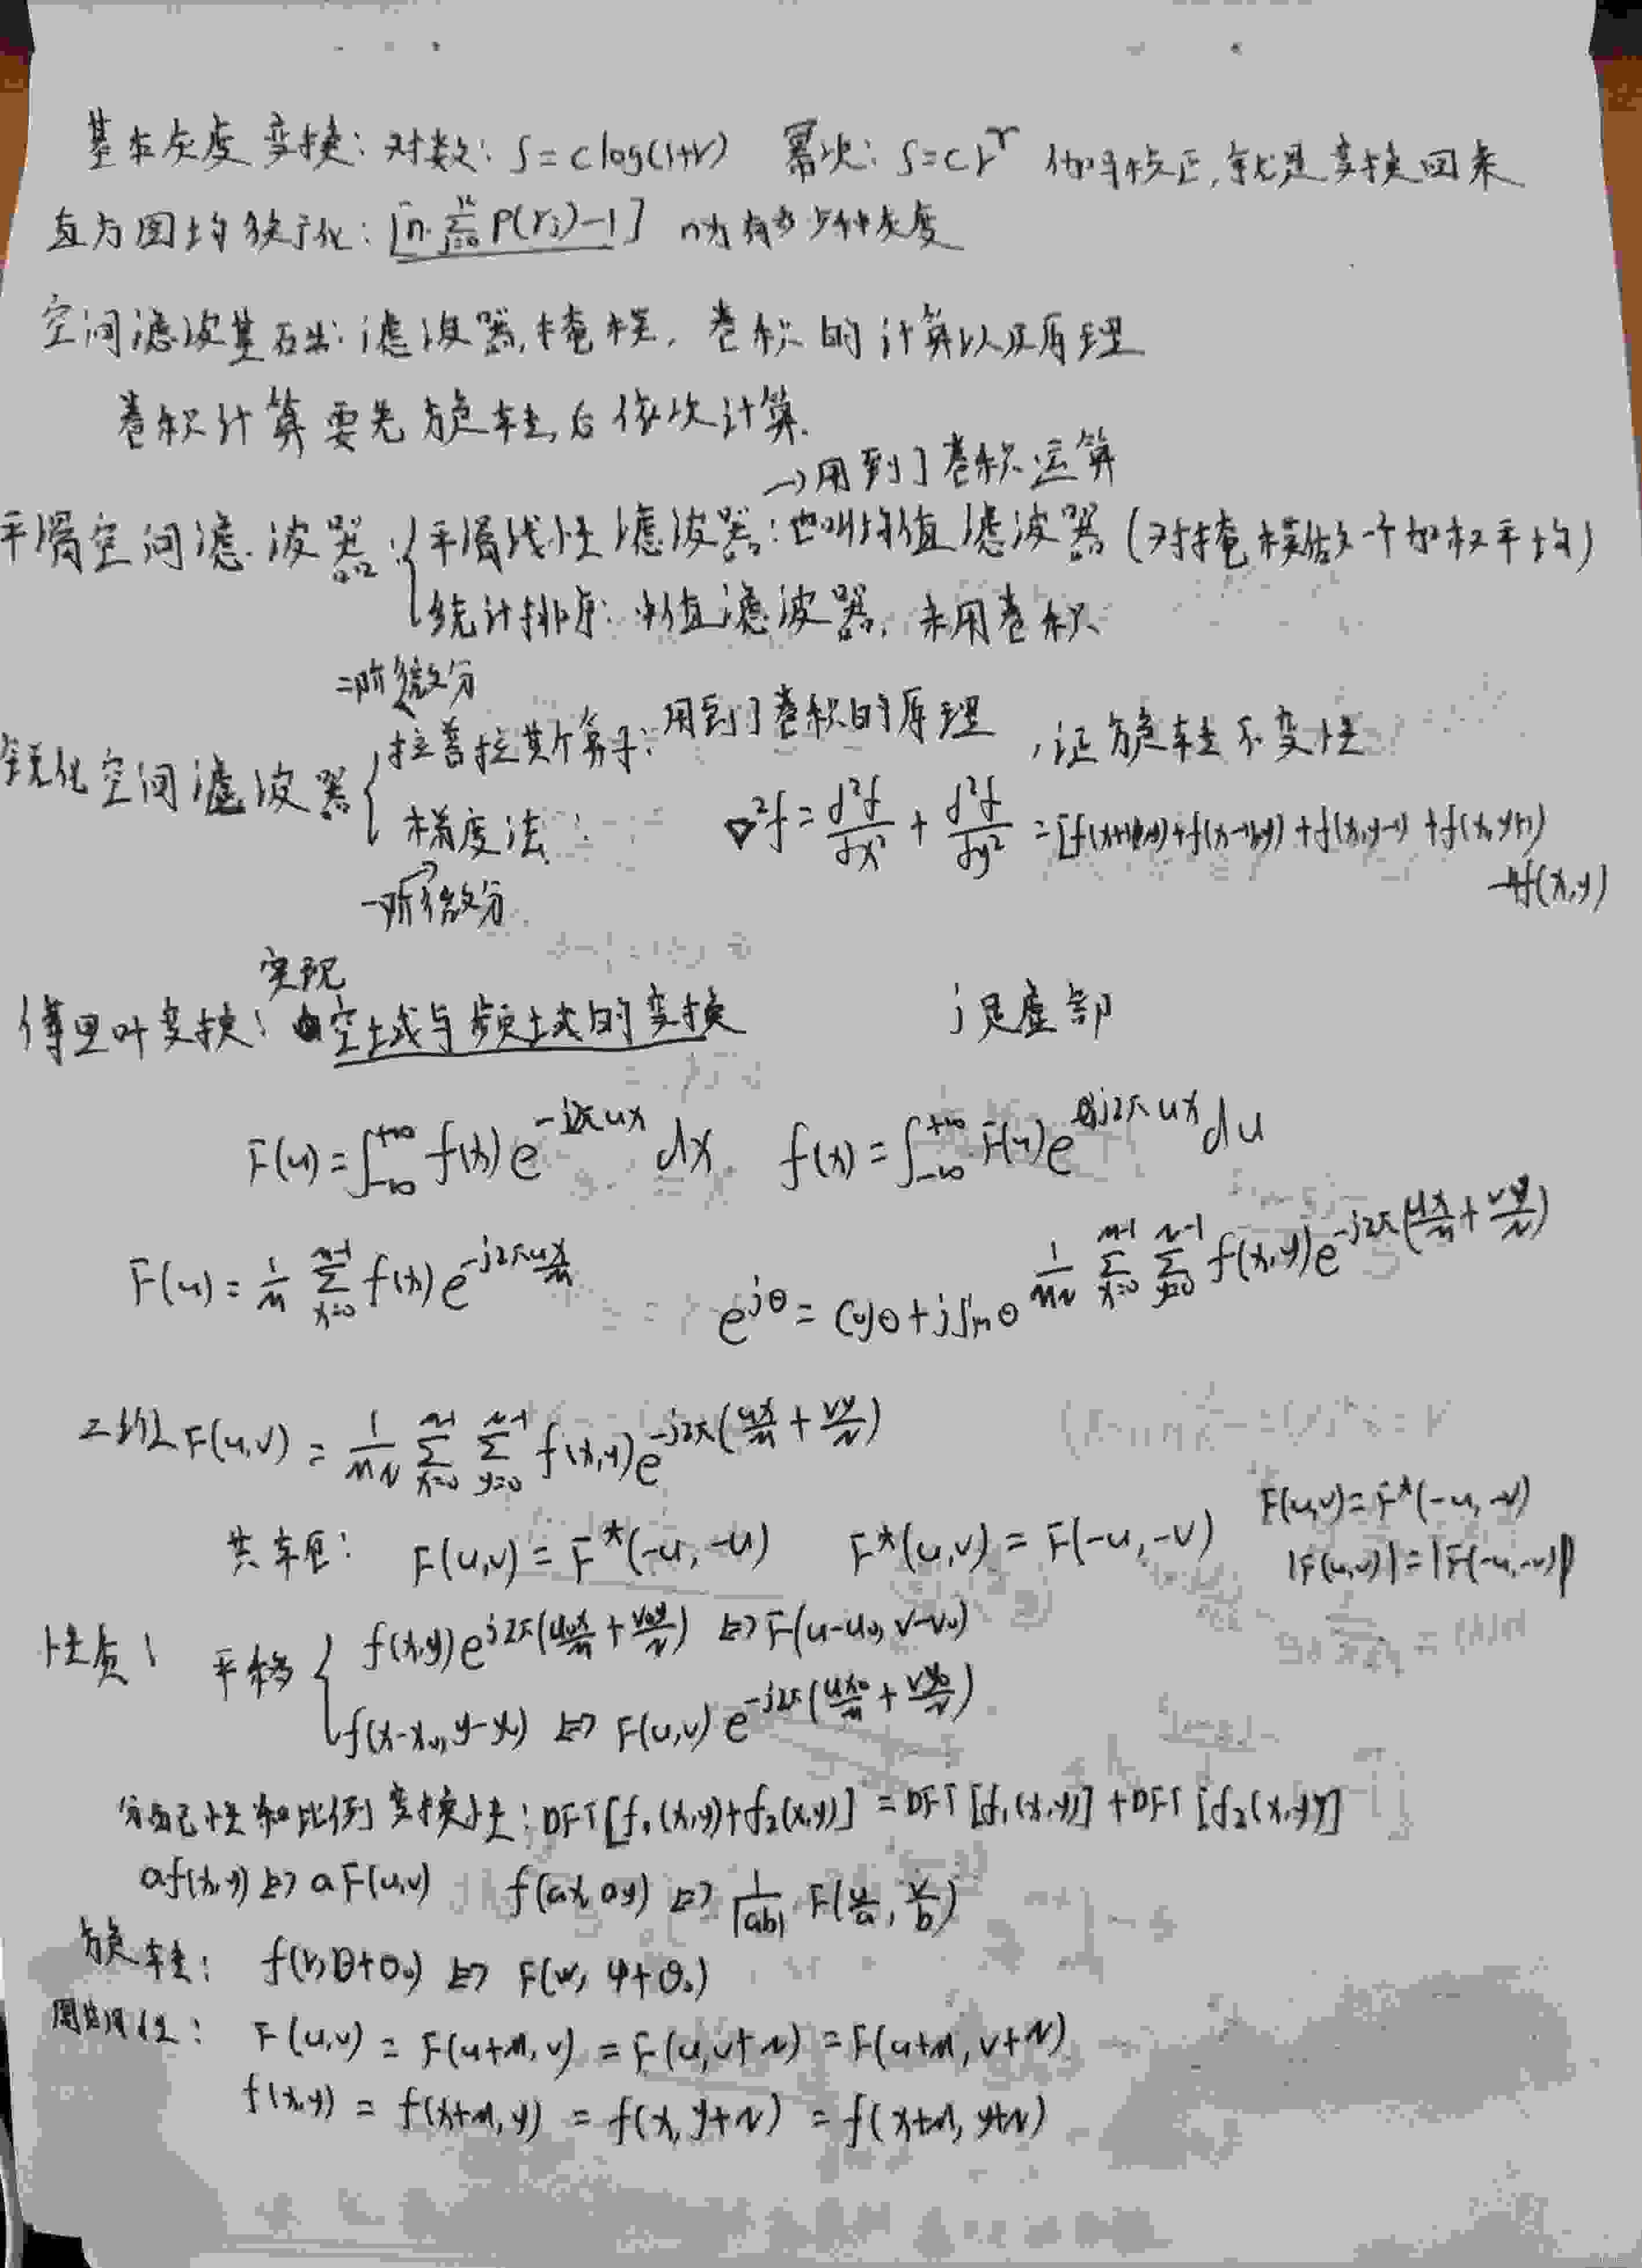 基本灰度变换: 对数: S=clog(1+r) 幂次: S=cr^γ 伽马校正,就是变换回来
直方图均衡化: [n·∑_{j=0}^{k} P(r_j)-1] n为有多少种灰度
空间滤波基础: 滤波器,掩模, 卷积的计算以及原理
卷积计算要先旋转,后依次计算.
→用到了卷积运算
平滑空间滤波器: { 平滑线性滤波器: 也叫均值滤波器 (对掩模做一个加权平均)
统计排序: 中值滤波器, 未用卷积
二阶微分
锐化空间滤波器 { 拉普拉斯算子: 用到了卷积的原理 ,证旋转不变性
梯度法: ∇²f = d²f/dx² + d²f/dy² = [f(x+1,y)+f(x-1,y)+f(x,y-1)+f(x,y+1)
-4f(x,y)
一阶微分
实现
傅里叶变换: 空域与频域的变换 j是虚部
F(u)=∫_{-∞}^{+∞} f(x)e^{-j2πux}dx f(x)=∫_{-∞}^{+∞} F(u)e^{j2πux}du
F(u)= 1/M ∑_{x=0}^{M-1} f(x)e^{-j2πux/M} e^{jθ}=cosθ+jsinθ 1/MN ∑_{x=0}^{M-1} ∑_{y=0}^{N-1} f(x,y)e^{-j2π(ux/M+vy/N)}
二维F(u,v) = 1/MN ∑_{x=0}^{M-1} ∑_{y=0}^{N-1} f(x,y)e^{-j2π(ux/M+vy/N)}
共轭: F(u,v)=F*(-u,-u) F*(u,v)=F(-u,-v) F(u,v)=F*(-u,-v)
|F(u,v)|=|F(-u,-v)|
性质: 平移 { f(x,y)e^{j2π(u₀x/M+v₀y/N)} ⇔ F(u-u₀,v-v₀)
f(x-x₀,y-y₀) ⇔ F(u,v)e^{-j2π(ux₀/M+vy₀/N)}
分配性和比例变换性: DFT[f₁(x,y)+f₂(x,y)] = DFT[f₁(x,y)]+DFT[f₂(x,y)]
af(x,y) ⇔ aF(u,v) f(ax,by) ⇔ 1/|ab| F(u/a,v/b)
旋转: f(r,θ+θ₀) ⇔ F(w,φ+θ₀)
周期性: F(u,v) = F(u+M,v) = F(u,v+N) = F(u+M,v+N)
f(x,y) = f(x+M,y) = f(x,y+N) = f(x+M,y+N)